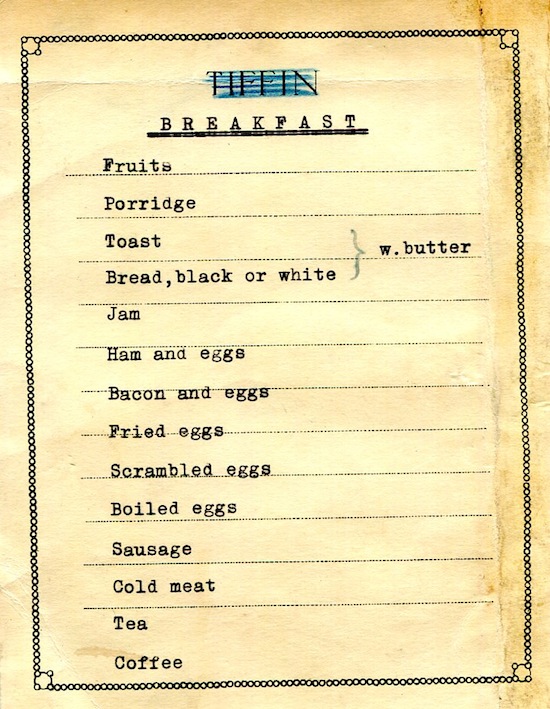 TIFFIN
BREAKFAST
Fruits
Porridge
Toast
} w.butter
Bread,black or white
Jam
Ham and eggs
Bacon and eggs
Fried eggs
Scrambled eggs
Boiled eggs
Sausage
Cold meat
Tea
Coffee